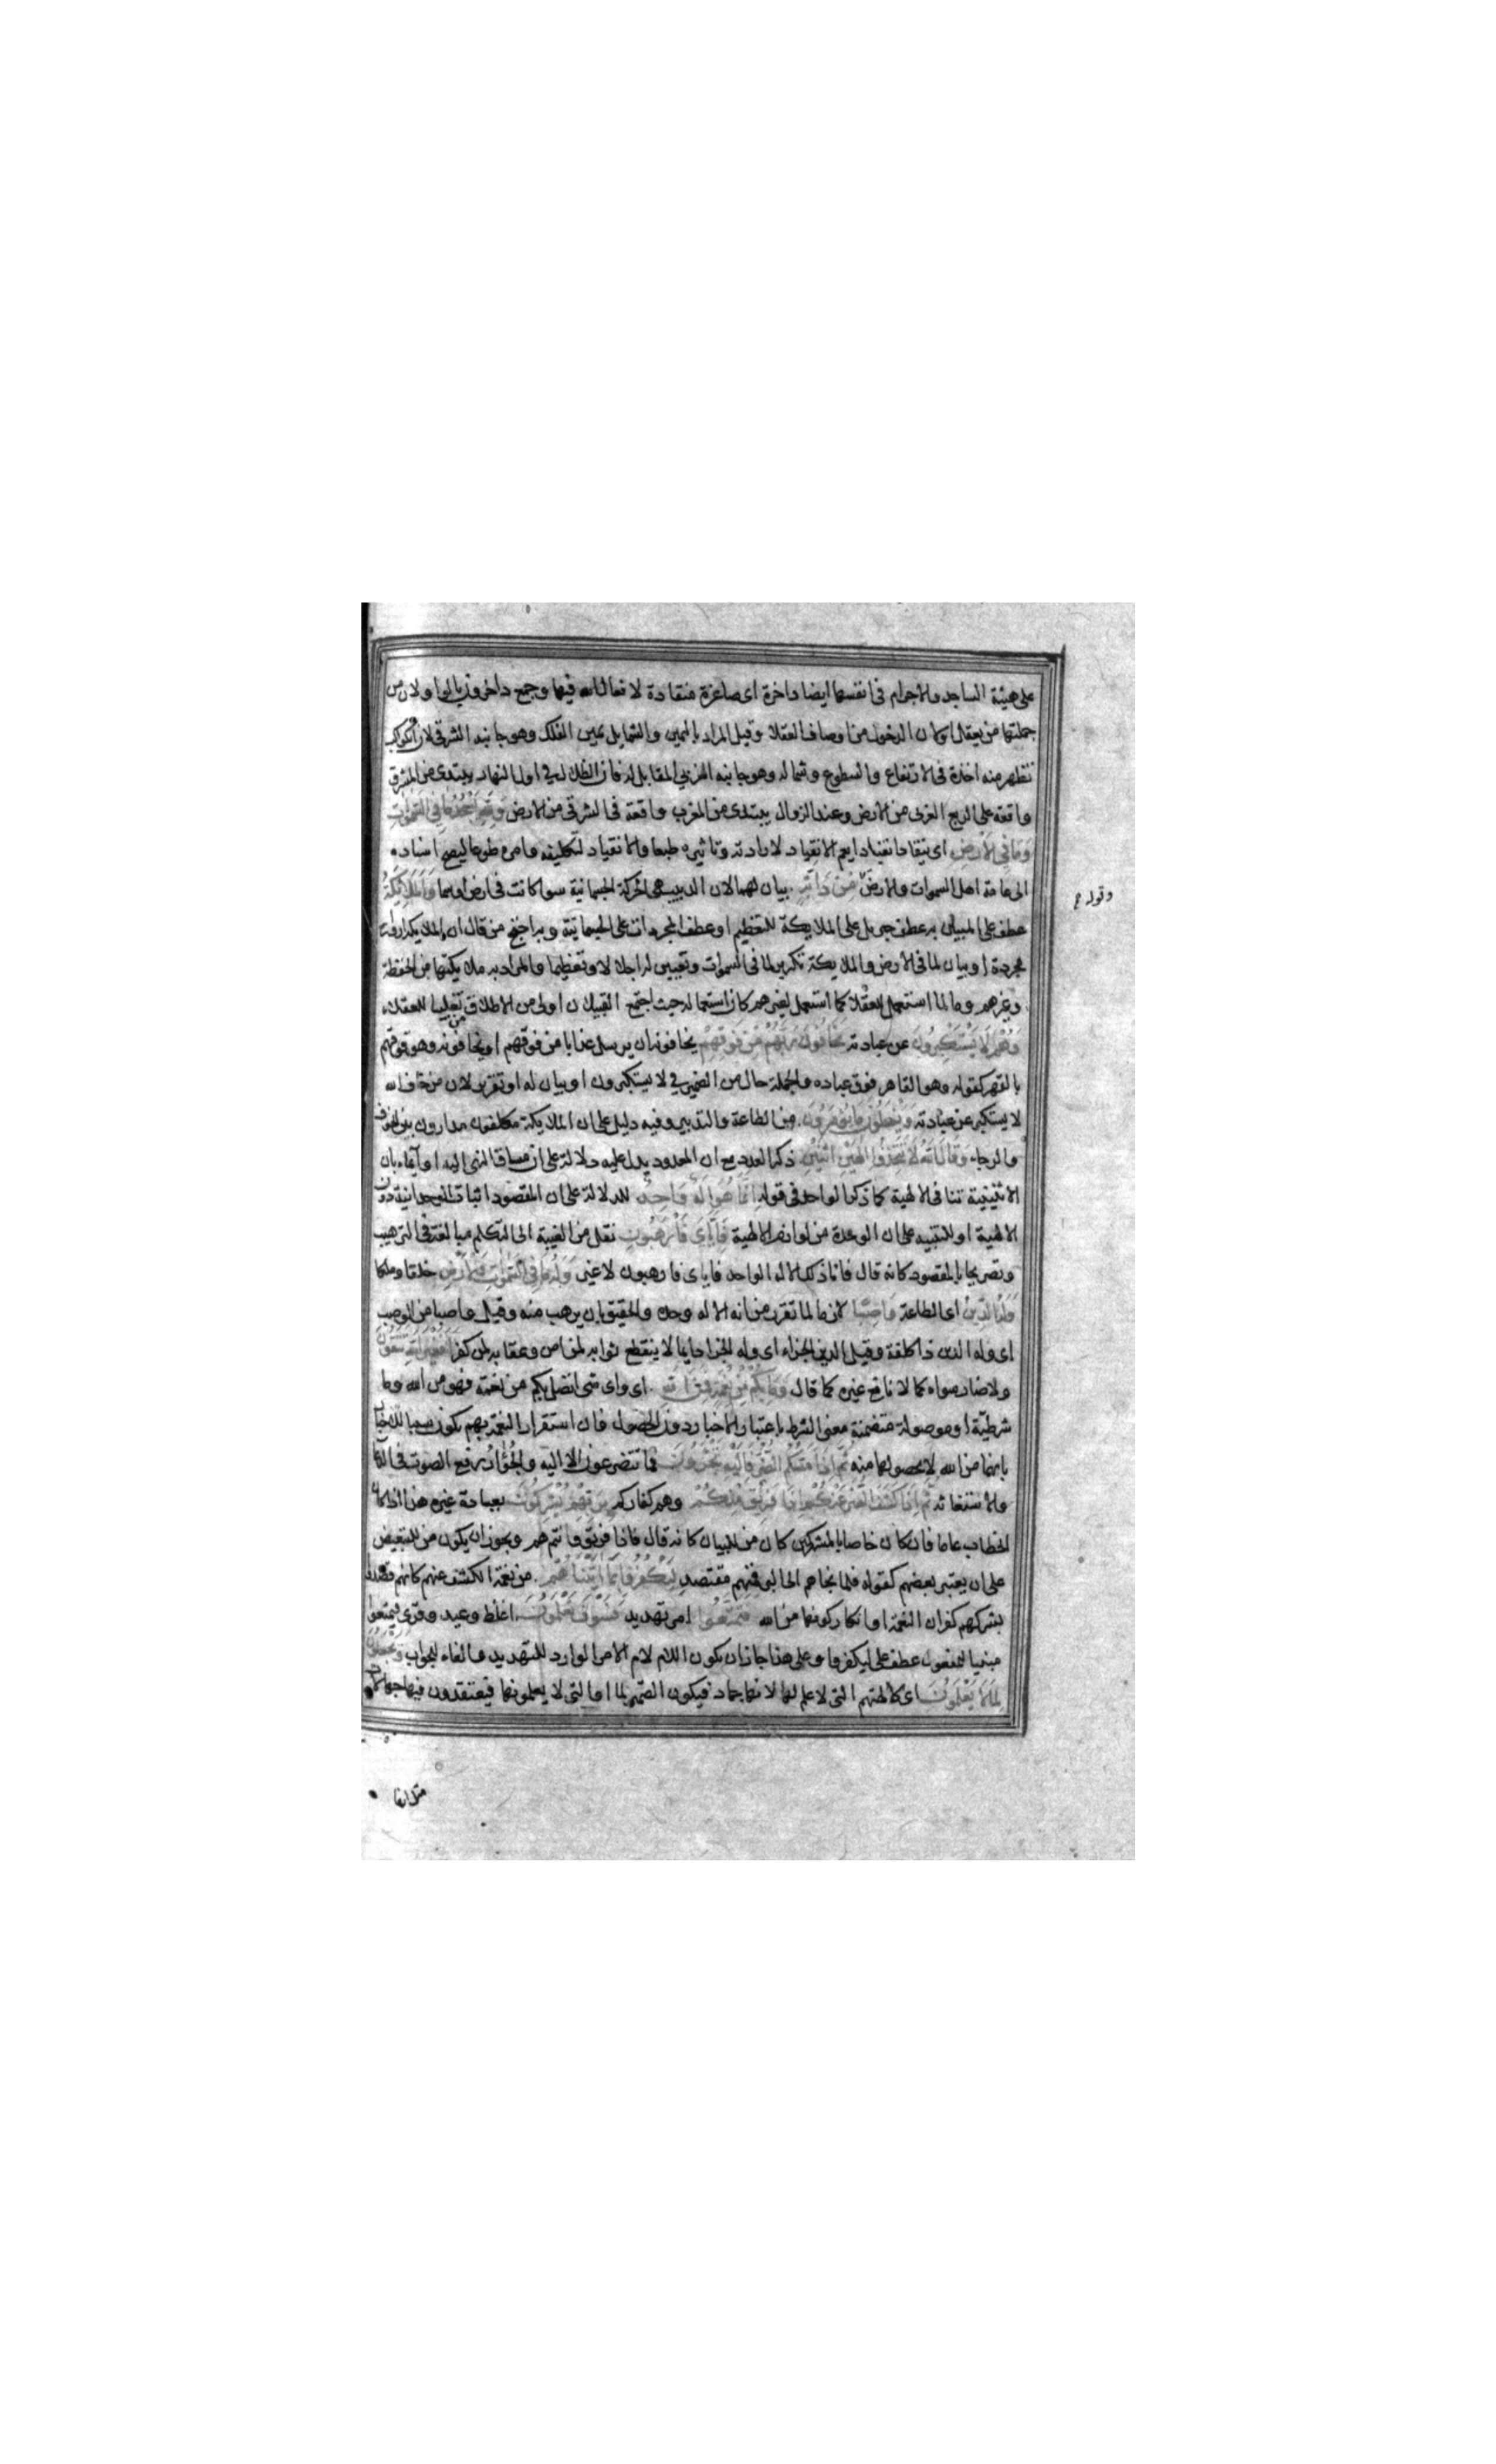 على هيئة الساجد والاجرام فى انفسها ايضا داخرة اى صاغرة منقادة لافعال الله فيها وجمع داخرون بالواو لان من
جملتها من يعقل او لان الدخور من اوصاف العقلا وقيل المراد باليمين والشمايل يمين الفلك وهو جانبه الشرقى لان الكواكب
تظهر منه اخذة فى الارتفاع والسطوع وشماله وهو جانبه الغربى المقابل له فان الظلال فى اول النهار يبتدى من المشرق
واقعة على الربع الغربى من الارض وعند الزوال يبتدى من المغرب واقعة فى الشرقى من الارض ولله يسجد ما فى السموات
وما فى الارض اى ينقاد انقيادا يعم الانقياد لارادته وتاثيره طبعا والانقياد لتكليفه وامره طوعا ليصح اسناده
الى عامة اهل السموات والارض من دابة بيان لهما لان الدبيب هى الحركة الجسمانية سوا كانت فى ارض او سما والملائكة
وقوله
عطف على المبين به عطف جبريل على الملايكة للتعظيم او عطف المجردات على الجسمانية وبه احتج من قال ان الملايكة ارواح
مجردة او بيان لما فى الارض والملايكة تكرير لما فى السموات وتعيين له اجلالا وتعظيما والمراد به ملايكتها من الحفظة
وغيرهم وما لما استعمل للعقلا كما استعمل لغيرهم كان استعماله حيث اجتمع القبيلان اولى من الاطلاق من تغليبا للعقلاء
وهم لا يستكبرون عن عبادته يخافون ربهم من فوقهم يخافونه ان يرسل عذابا من فوقهم او يخافونه وهو فوقهم
بالقهر كقوله وهو القاهر فوق عباده والجملة حال من الضمير فى لا يستكبرون او بيان له او تقرير لان من خاف الله
لا يستكبر عن عبادته ويفعلون ما يؤمرون من الطاعة والتدبير وفيه دليل على ان الملايكة مكلفون مدارون بين الخوف
والرجاء وقال الله لا تتخذوا الهين اثنين ذكر العدد مع ان المعدود يدل عليه دلالة على ان مساق النهى اليه او ايماء بان
الاثنينية تنافى الالهية كما ذكر الواحد فى قوله انما هو اله واحد للدلالة على ان المقصود اثبات الوحدانية دون
الالهية او للتنبيه على ان الوحدة من لوازم الالهية فاياى فارهبون نقل من الغيبة الى التكلم مبالغة فى الترهيب
وتصريحا بالمقصود كانه قال فانا ذلك الاله الواحد فاياى فارهبون لا غير وله ما فى السموات والارض خلقا وملكا
وله الدين اى الطاعة واصبا لازما لما تقرر من انه الاله وحده والحقيق بان يرهب منه وقيل واصبا من الوصب
اى وله الدين ذا كلفة وقيل الدين الجزاء اى وله الجزا دايما لا ينقطع ثوابه لمن امن وعقابه لمن كفر افغير الله تتقون
ولا ضار سواه كما لا نافع غيره كما قال وما بكم من نعمة فمن الله اى واى شى اتصل بكم من نعمة فهو من الله وما
شرطية او موصولة متضمنة معنى الشرط باعتبار الاخبار دون الحصول فان استقرار النعمة بهم يكون سببا للاخبار
بانها من الله لا لحصولها منه ثم اذا مسكم الضر فاليه تجئرون فما تتضرعون الا اليه والجؤار رفع الصوت فى الدعا
والاستغاثة ثم اذا كشف الضر عنكم اذا فريق منكم وهم كفاركم بربهم يشركون بعبادة غيره هذا اذا كان
الخطاب عاما فان كان خاصا بالمشركين كان من للبيان كانه قال فاذا فريق وانتم هم ويجوز ان يكون من للتبعيض
على ان يعتبر بعضهم كقوله فلما نجاهم الى البر فمنهم مقتصد ليكفروا بما اتيناهم من نعمة الكشف عنهم كانهم قصدوا
بشركهم كفران النعمة او انكار كونها من الله فتمتعوا امر تهديد فسوف تعلمون اغلظ وعيد وقرئ فيمتعوا
مبنيا للمفعول عطف على ليكفروا وعلى هذا جاز ان يكون اللام لام الامر الوارد للتهديد والفاء للجواب ويجعلون
لما لا يعلمون اى لالهتهم التى لا علم لها لانها جماد فيكون الضمير لما او التى لا يعلمونها فيعتقدون فيها جهالات